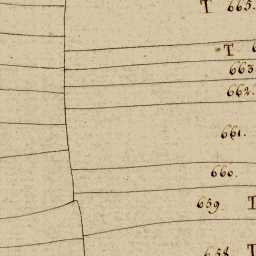 T 665.
T 6
663
662.
661.
660.
659. T
658. T